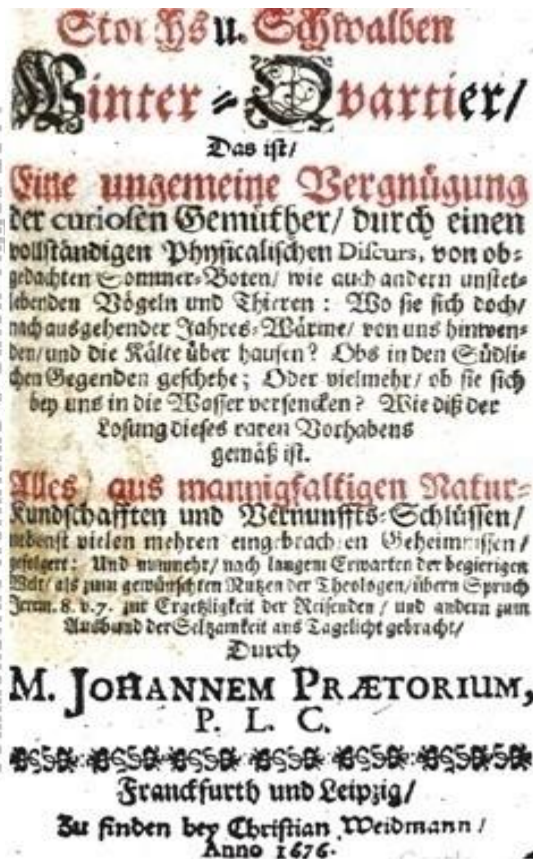 Storchs u. Schwalben
Winter-Qvartier/
Das ist/
Eine ungemeine Vergnügung
der curiosen Gemüther/ durch einen
vollständigen Physicalischen Discurs, von ob-
gedachten Sommer-Boten/ wie auch andern unstet-
lebenden Vögeln und Thieren: Wo sie sich doch/
nach ausgehender Jahres-Wärme/ von uns hinwen-
den/ und die Kälte über hausen? Obs in den Südli-
chen Gegenden geschehe; Oder vielmehr/ ob sie sich
bey uns in die Wasser versencken? Wie diß der
Losung dieses raren Vorhabens
gemäß ist.
Alles aus mannigfaltigen Natur-
Kundschafften und Vernunffts-Schlüssen/
nebenst vielen mehren eingebrachten Geheimnissen/
gefolgert: Und nunmehr/ nach langem Erwarten der begierigen
Welt/ als zum gewünschten Nutzen der Theologen/ übern Spruch
Jerem. 8. v. 7. zur Ergetzligkeit der Reisenden/ und andern zum
Ausbund der Seltzamkeit ans Tagelicht gebracht/
Durch
M. JOHANNEM PRÆTORIUM,
P. L. C.
Franckfurth und Leipzig/
Zu finden bey Christian Weidmann/
Anno 1676.